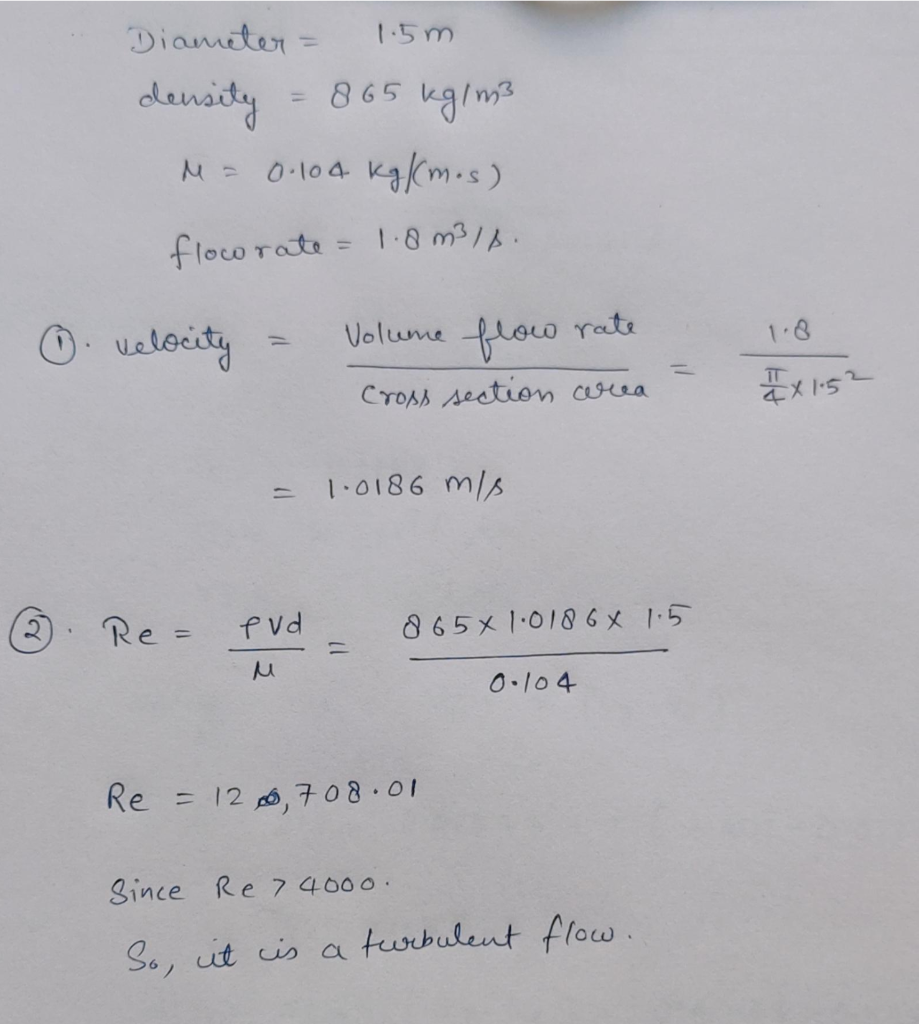 Diameter = 1.5 m
density = 865 kg/m³
μ = 0.104 kg/(m.s)
flow rate = 1.8 m³/s.
①. velocity = Volume flow rate / Cross section area = 1.8 / π/4 x 1.5²
= 1.0186 m/s
②. Re = ρvd / μ = 865 x 1.0186 x 1.5 / 0.104
Re = 12,708.01
Since Re > 4000.
So, it is a turbulent flow.